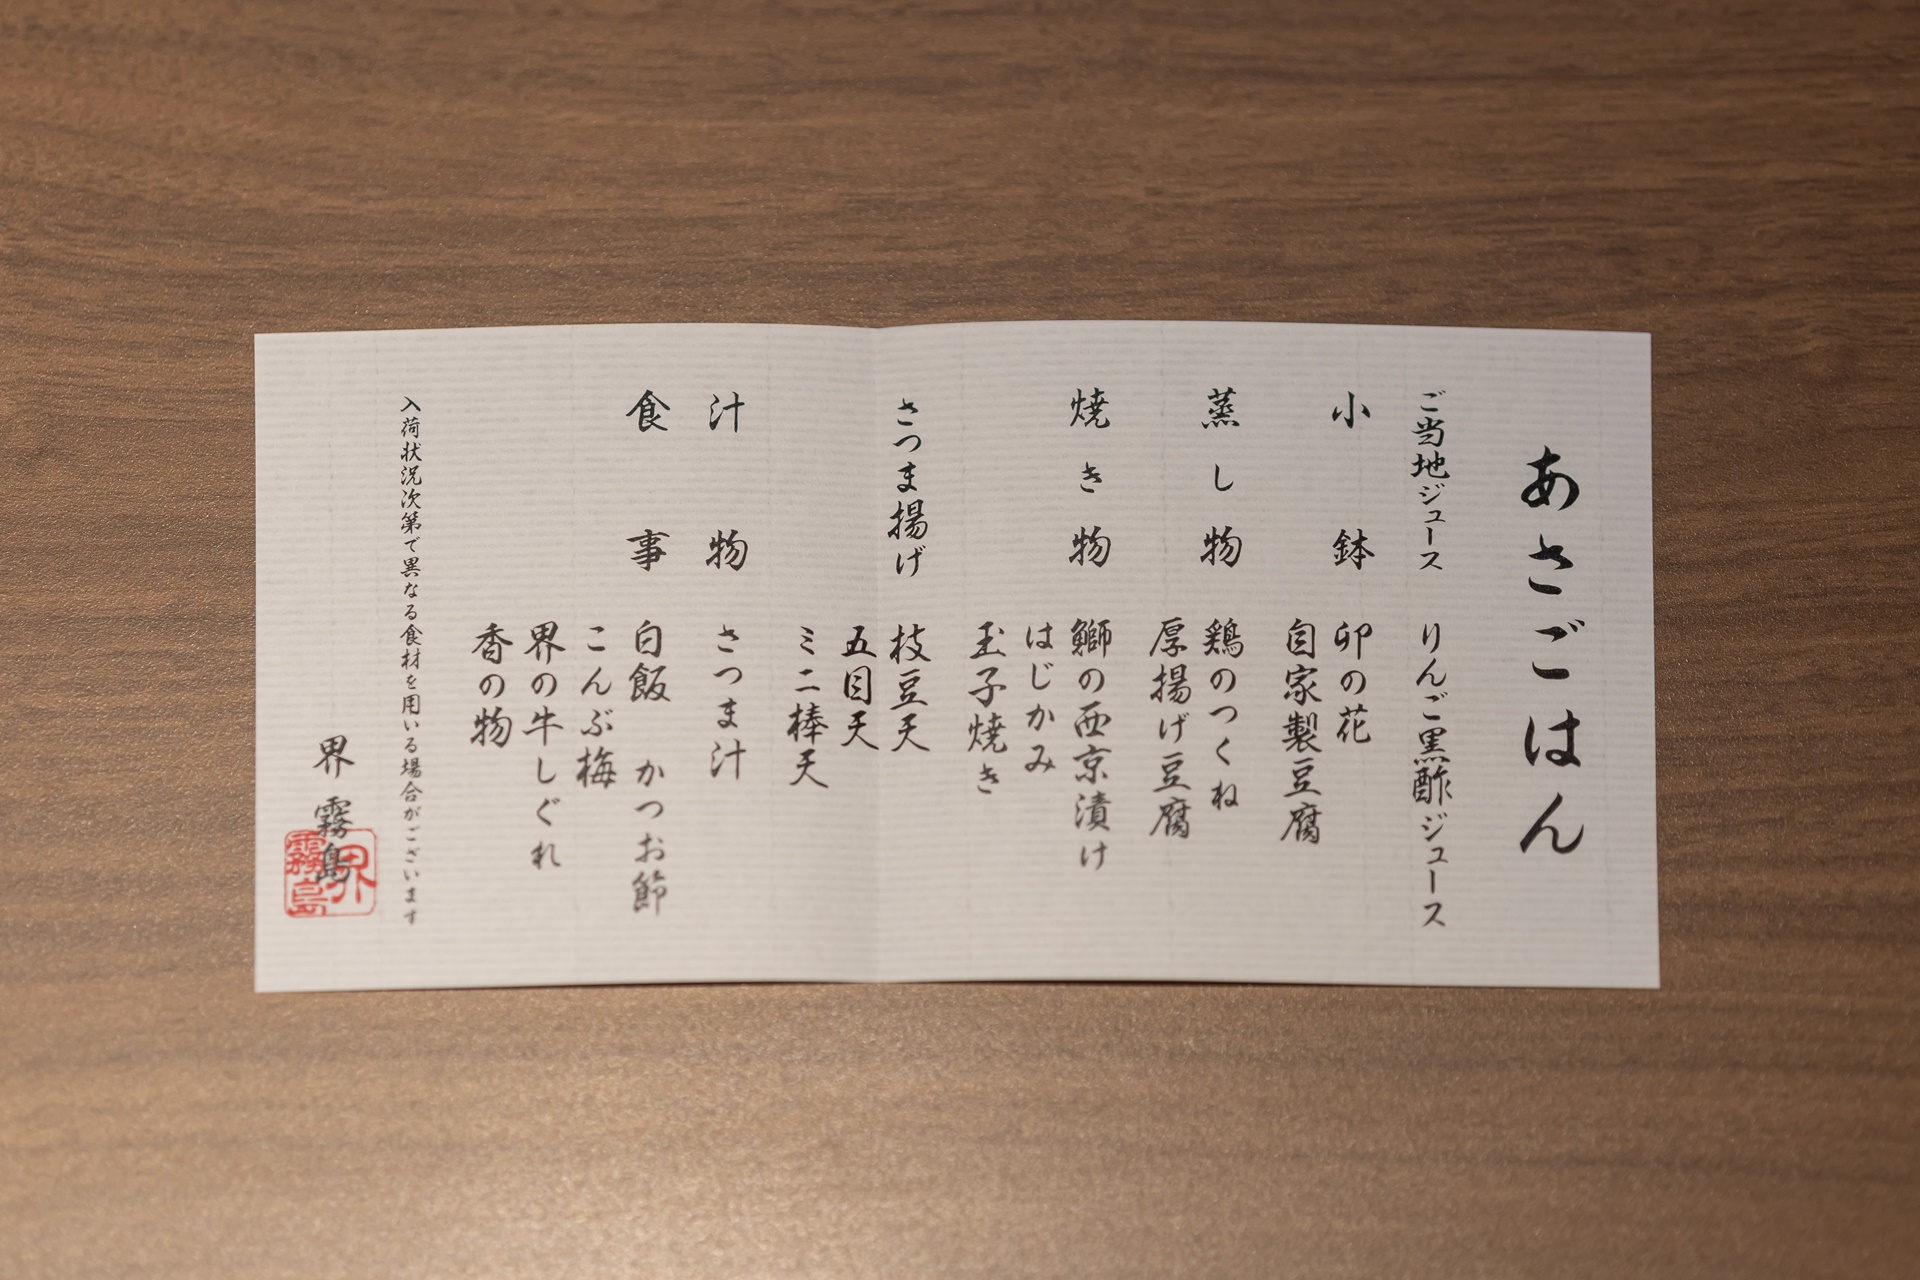 あさごはん
ご当地ジュース　りんご黒酢ジュース
小鉢　卯の花
自家製豆腐
蒸し物　鶏のつくね
厚揚げ豆腐
焼き物　鰤の西京漬け
はじかみ
玉子焼き
さつま揚げ　枝豆天
五目天
ミニ棒天
汁物　さつま汁
食事　白飯　かつお節
こんぶ梅
界の牛しぐれ
香の物
入荷状況次第で異なる食材を用いる場合がございます
界　霧島
界
霧島